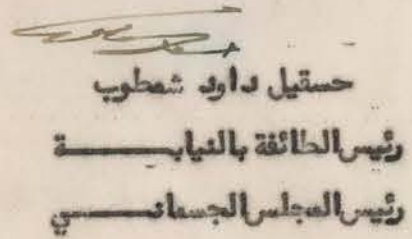 حسقيل داود شمطوب
رئيس الطائفة بالنيابـــــة
رئيس المجلس الجسمانـــــي